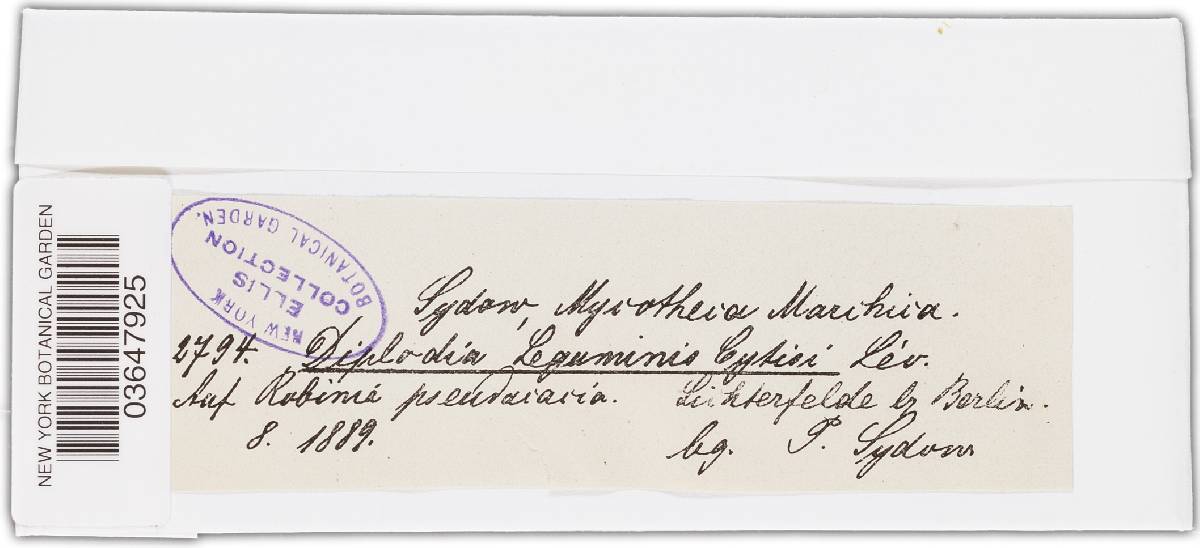 NEW YORK BOTANICAL GARDEN
03647925
NEW YORK
ELLIS
COLLECTION
BOTANICAL GARDEN.
Sydow, Mycotheca Marchica.
2794. Diplodia Leguminis Cytisi Lév.
Auf Robinia pseudacacia. Lichterfelde b. Berlin.
8. 1889. lg. P. Sydow